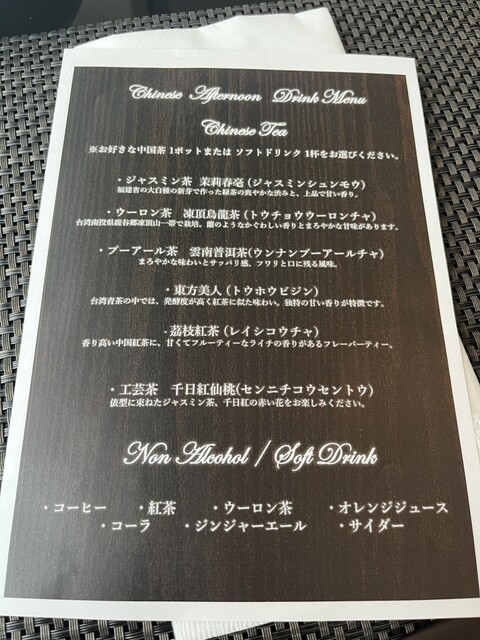 Chinese Afternoon Drink Menu
Chinese Tea
※お好きな中国茶 1ポットまたは ソフトドリンク 1杯をお選びください。
・ジャスミン茶 茉莉春毫 (ジャスミンシュンモウ)
福建省の大白種の新芽で作った緑茶の爽やかな渋みと、上品で甘い香り。
・ウーロン茶 凍頂烏龍茶 (トウチョウウーロンチャ)
台湾南投県鹿谷郷凍頂山一帯で栽培。蘭のようなかぐわしい香りとまろやかな甘味があります。
・プーアール茶 雲南普洱茶(ウンナンプーアールチャ)
まろやかな味わいとサッパリ感、フワリと口に残る風味。
・東方美人 (トウホウビジン)
台湾青茶の中では、発酵度が高く紅茶に似た味わい。独特の甘い香りが特徴です。
・荔枝紅茶 (レイシコウチャ)
香り高い中国紅茶に、甘くてフルーティーなライチの香りがあるフレーバーティー。
・工芸茶 千日紅仙桃(センニチコウセントウ)
俵型に束ねたジャスミン茶、千日紅の赤い花をお楽しみください。
Non Alcohol / Soft Drink
・コーヒー ・紅茶 ・ウーロン茶 ・オレンジジュース
・コーラ ・ジンジャーエール ・サイダー